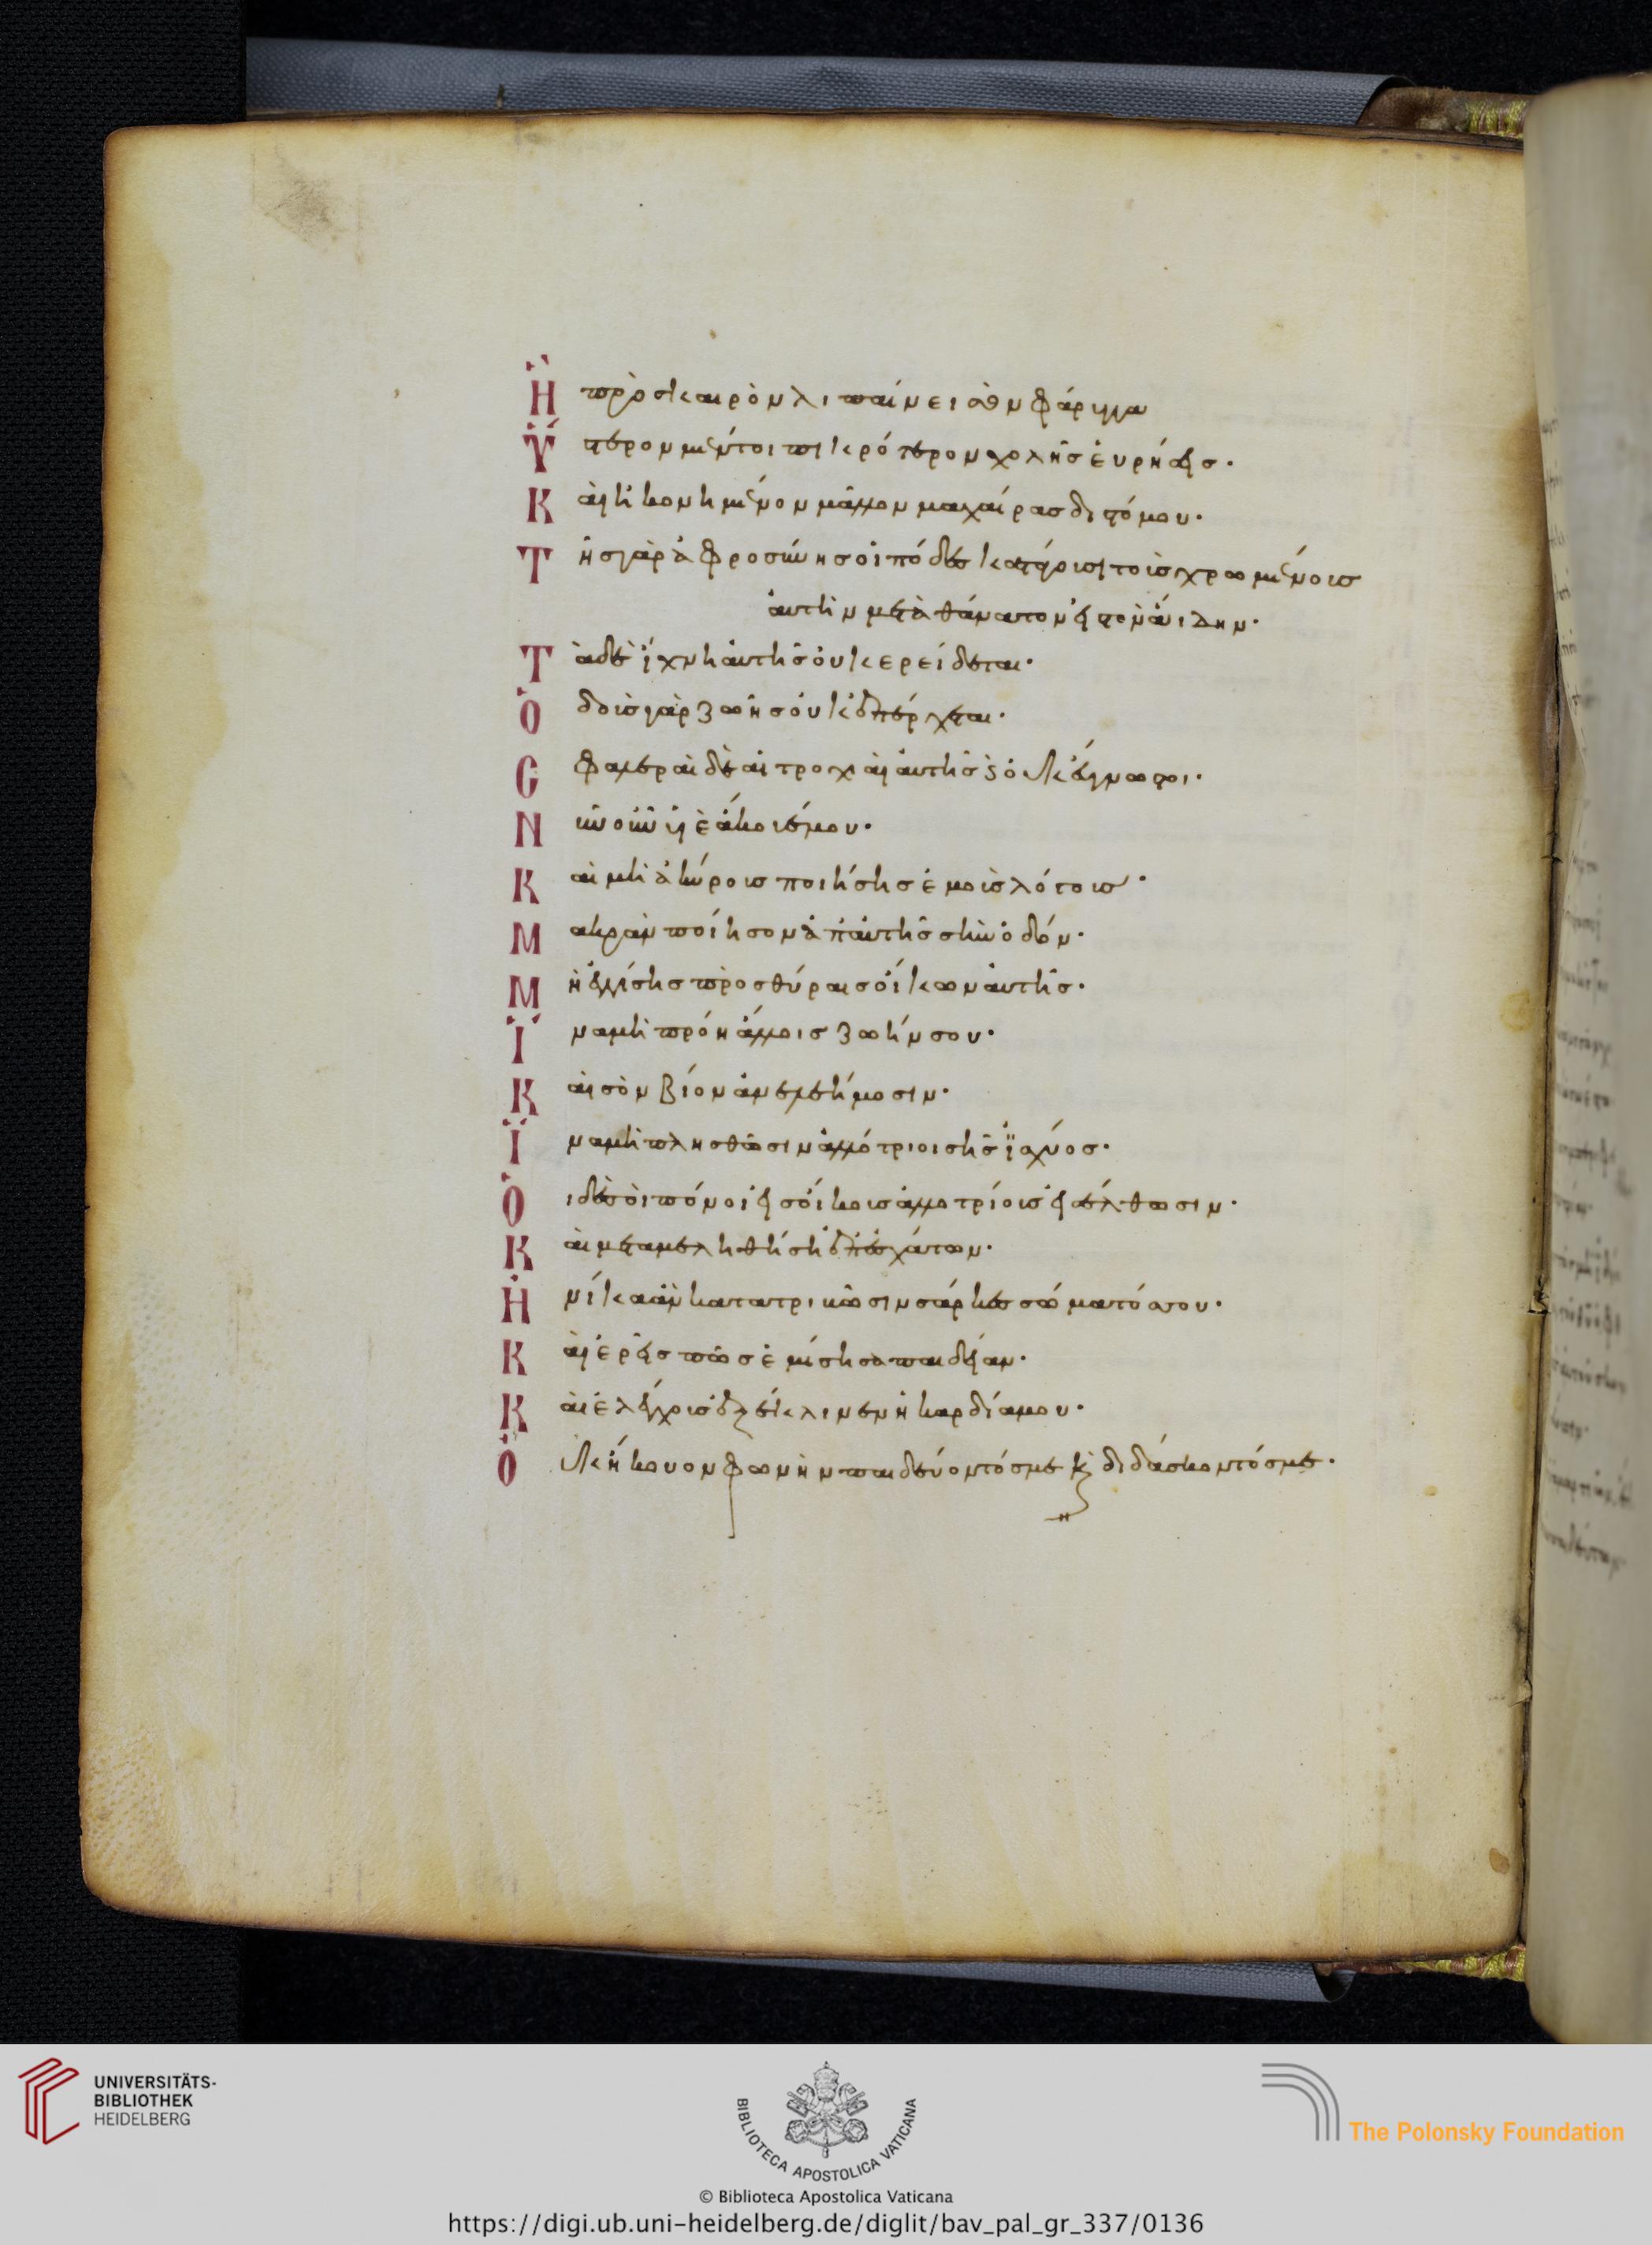 Ἣ πρὸς καιρὸν λιπαίνει σὸν φάρυγγα
Ὕστερον μέντοι πικρότερον χολῆς εὑρήσεις·
Καὶ ἠκονημένον μᾶλλον μαχαίρας διστόμου·
Τῆς γὰρ ἀφροσύνης οἱ πόδες κατάγουσι τοὺς χρωμένους
αὐτὴν μετὰ θάνατον εἰς τὸν ἅιδην·
Τὰ δὲ ἴχνη αὐτῆς οὐκ ἐρείδεται·
Ὁδοὺς γὰρ ζωῆς οὐκ ἐπέρχεται·
Σφαλεραὶ δὲ αἱ τροχιαὶ αὐτῆς καὶ οὐκ εὔγνωστοι·
Νῦν οὖν υἱὲ ἄκουέ μου·
Καὶ μὴ ἀκύρους ποιήσῃς ἐμοὺς λόγους·
Μακρὰν ποίησον ἀπ' αὐτῆς σὴν ὁδόν·
Μὴ ἐγγίσῃς πρὸς θύραις οἴκων αὐτῆς·
Ἵνα μὴ πρόῃ ἄλλοις ζωήν σου·
Καὶ σὸν βίον ἀνελεήμοσιν·
Ἵνα μὴ πλησθῶσιν ἀλλότριοι σῆς ἰσχύος·
Οἱ δὲ σοὶ πόνοι εἰς οἴκους ἀλλοτρίους εἰσέλθωσιν·
Καὶ μεταμεληθήσῃ ἐπ' ἐσχάτων·
Ἡνίκα ἂν κατατριβῶσιν σάρκες σώματός σου·
Καὶ ἐρεῖς πῶς ἐμίσησα παιδείαν·
Καὶ ἐλέγχους ἐξέκλινεν ἡ καρδία μου·
Οὐκ ἤκουον φωνὴν παιδεύοντός με καὶ διδάσκοντός με·
UNIVERSITÄTS-
BIBLIOTHEK
HEIDELBERG
BIBLIOTECA APOSTOLICA VATICANA
The Polonsky Foundation
© Biblioteca Apostolica Vaticana
https://digi.ub.uni-heidelberg.de/diglit/bav_pal_gr_337/0136